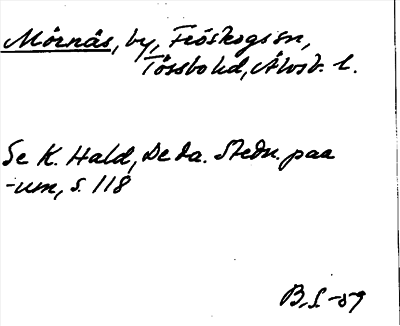 Mörnäs, by, Fröskogs sn,
Tössbo hd, Älvsb. l.
Se K. Hald, De da. Stedn. paa
-um, s. 118
B.L-59